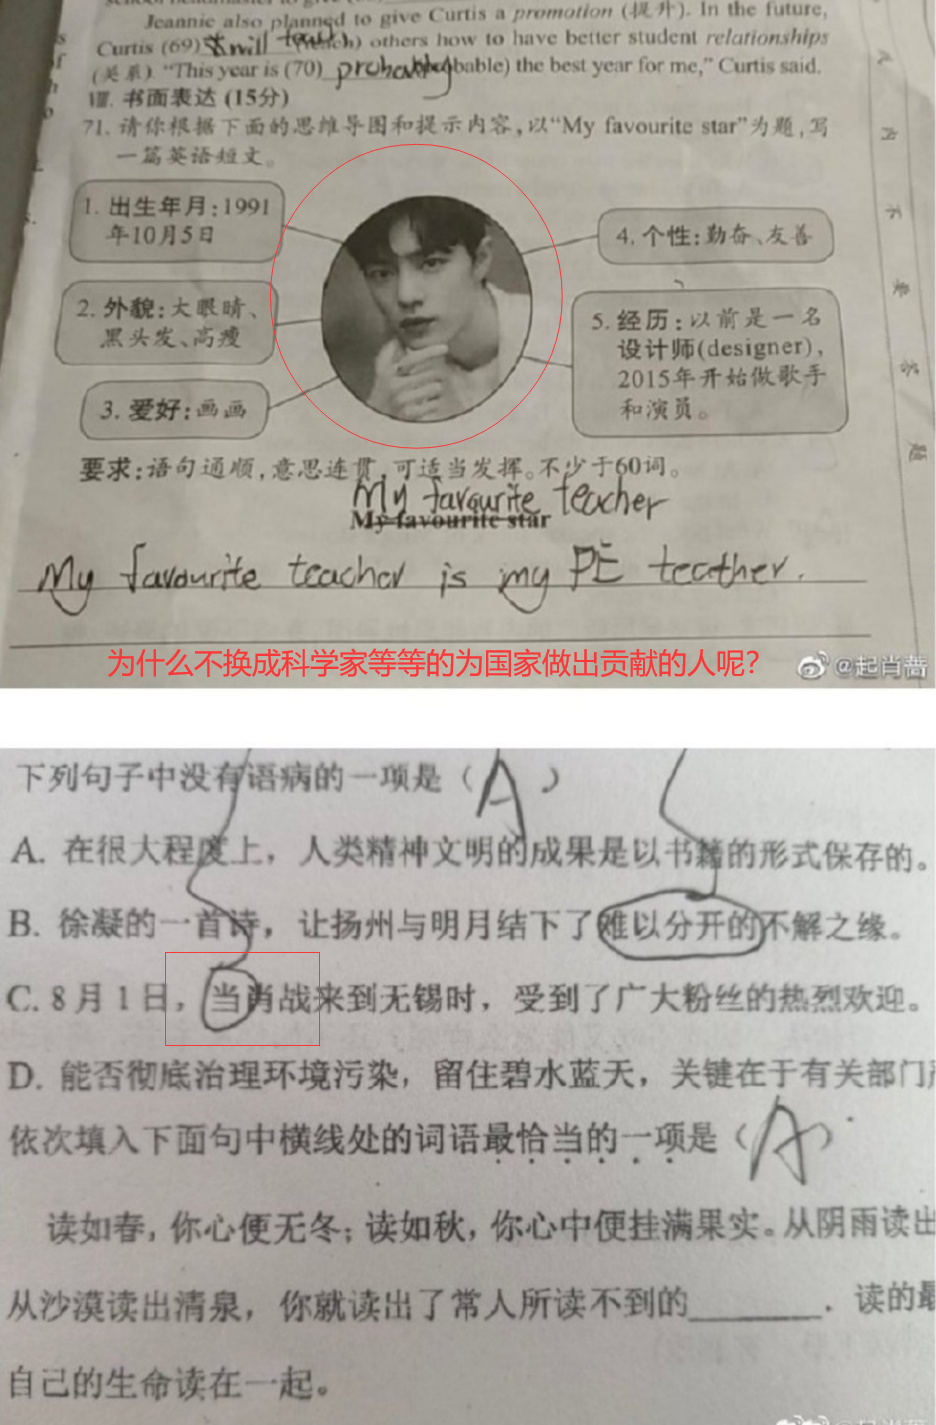 Jeannie also planned to give Curtis a promotion (提升). In the future,
Curtis (69) will teach) others how to have better student relationships
(关系). “This year is (70) probable) the best year for me,” Curtis said.
Ⅷ. 书面表达 (15分)
71. 请你根据下面的思维导图和提示内容,以“My favourite star”为题,写
一篇英语短文。
1. 出生年月:1991
年10月5日
2. 外貌:大眼睛、
黑头发、高瘦
3. 爱好:画画
4. 个性:勤奋、友善
5. 经历:以前是一名
设计师(designer),
2015年开始做歌手
和演员。
要求:语句通顺,意思连贯,可适当发挥。不少于60词。
My favourite teacher
My favourite star
My favourite teacher is my PE teather.
为什么不换成科学家等等的为国家做出贡献的人呢?
@起肖蔷
下列句子中没有语病的一项是( A )
A. 在很大程度上，人类精神文明的成果是以书籍的形式保存的。
B. 徐凝的一首诗，让扬州与明月结下了难以分开的不解之缘。
C. 8月1日，当肖战来到无锡时，受到了广大粉丝的热烈欢迎。
D. 能否彻底治理环境污染，留住碧水蓝天，关键在于有关部门
依次填入下面句中横线处的词语最恰当的一项是( A )
读如春,你心便无冬;读如秋,你心中便挂满果实。从阴雨读出
从沙漠读出清泉，你就读出了常人所读不到的______．读的最
自己的生命读在一起。